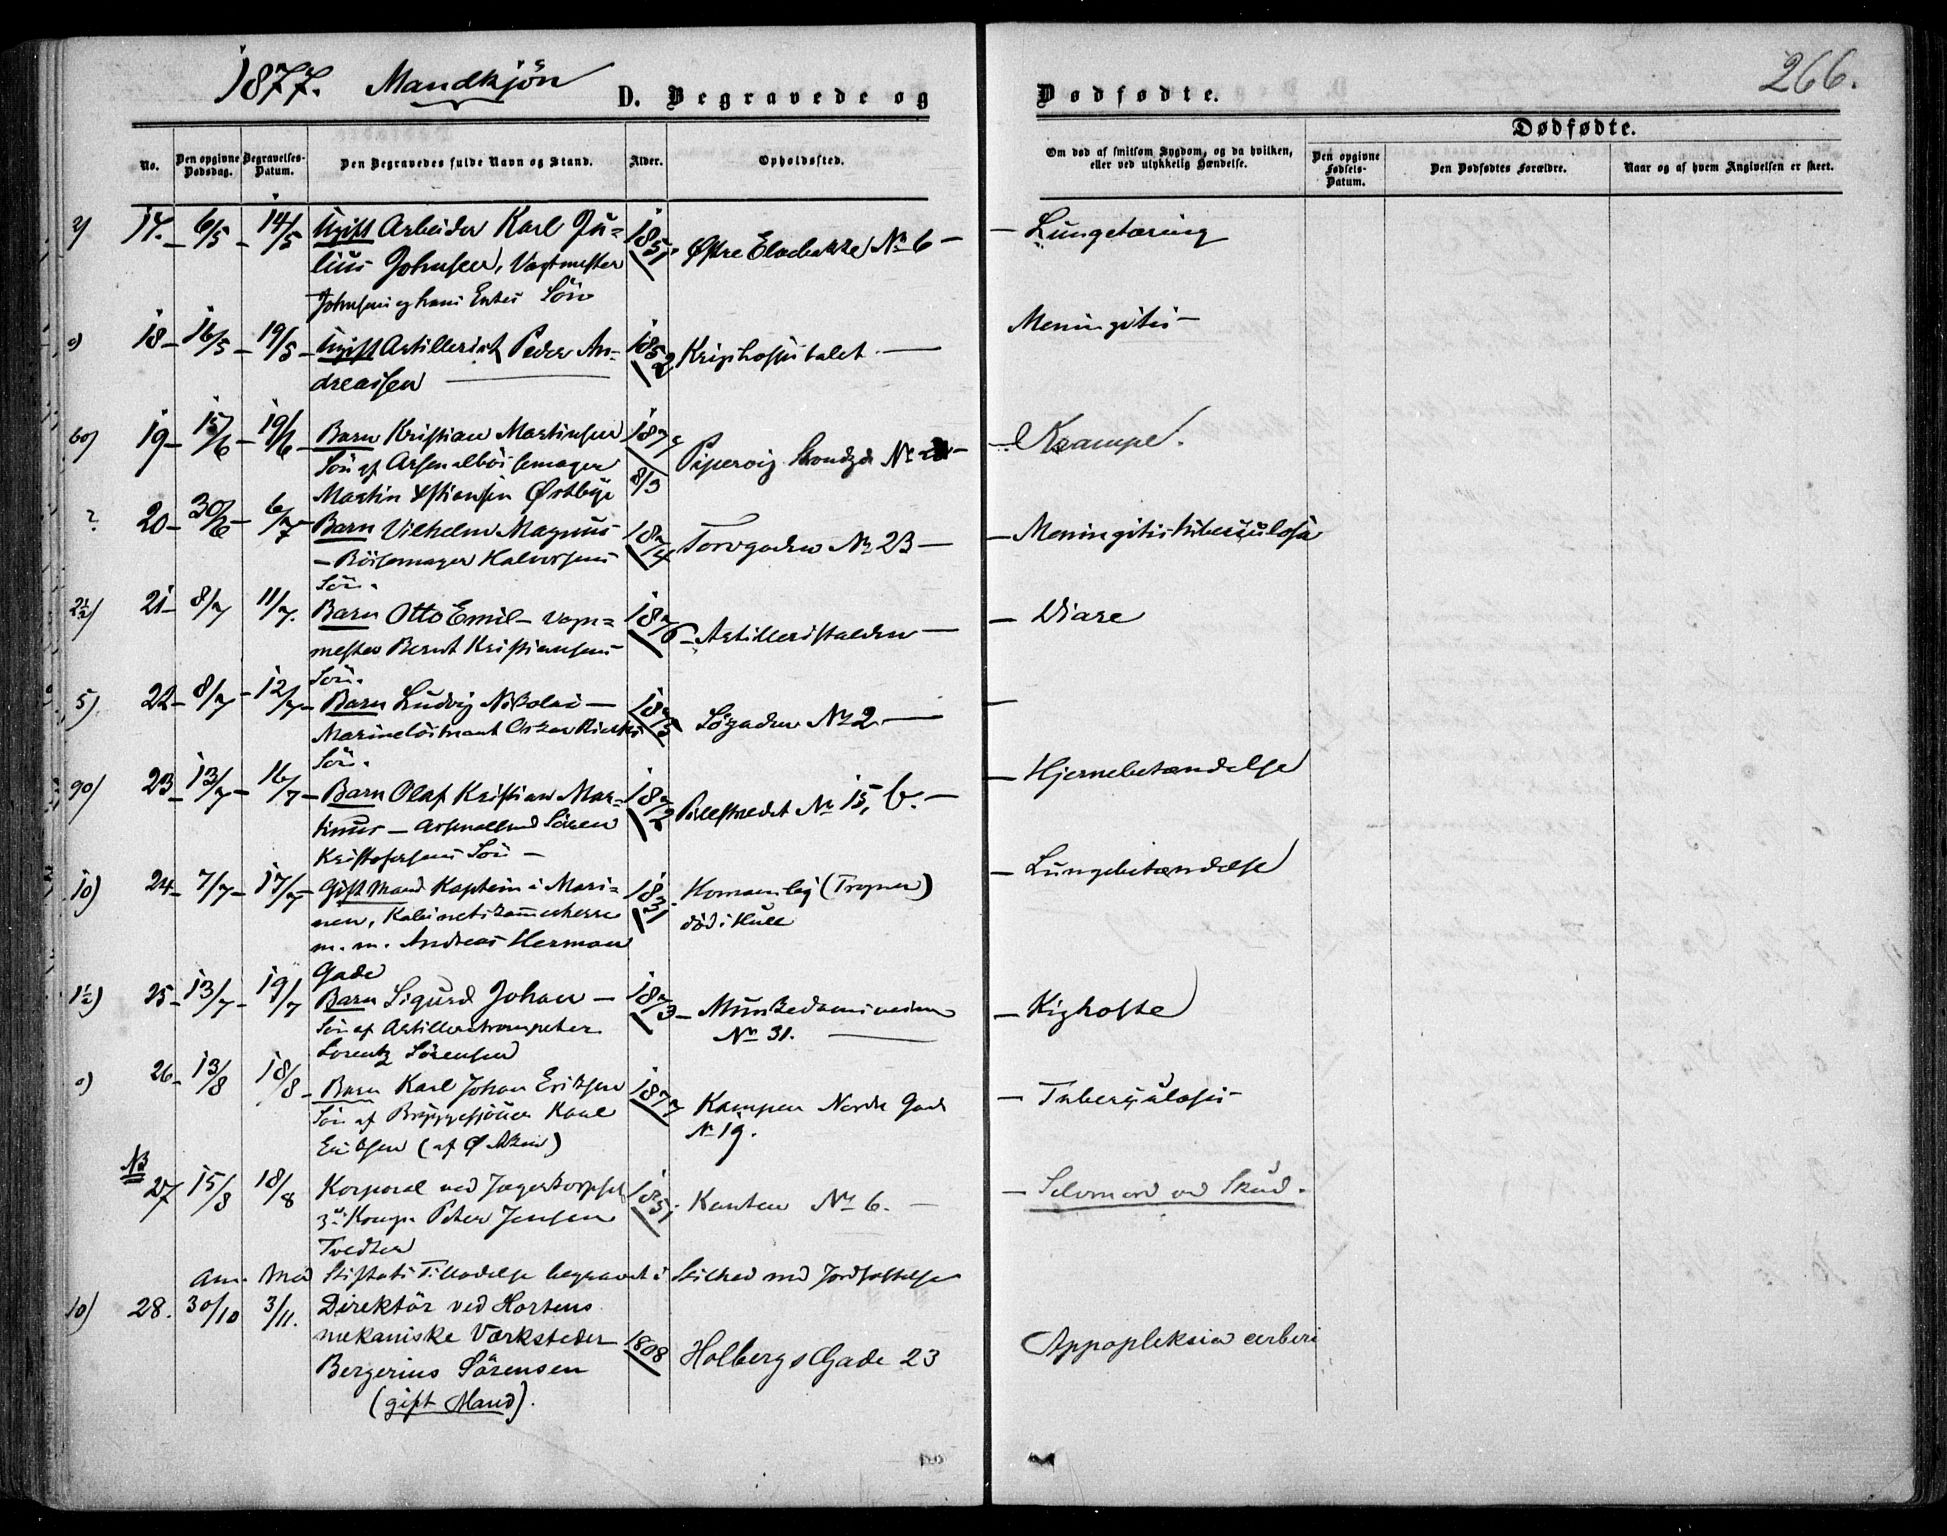 1877. Mandkjön
D. Begravede og Dødfødte.
266.
No.
Den opgivne Dødsdag.
Begravelses-Datum.
Den Begravedes fulde Navn og Stand.
Alder.
Opholdssted.
Om død af smitsom Sygdom, og da hvilken, eller ved ulykkelig Hændelse.
Dødfødte.
Den opgivne Fødsels-Datum.
Den Dødfødtes Forældre.
Naar og af hvem Angivelsen er skeet.
2) 17. 6/5 14/5 Ugift Arbeider Karl Ju= 1851 Østre Elvebakke No 6 — Lungetæring
lius Johnsen, Vagtmester
Johnsens og hans Søn
0) 18 16/5 19/5 Ugift Artillerist Peder An- 1852 Krigshospitalet — Meningitis
dreassen
60) 19 15/6 19/6 Barn Kristian Martinsen 1877 8/3 Pipervig Strandgd No — Krampe.
Søn af Arsenalbøssemager
Martin Østbye
? 20 30/6 6/7 Barn Vilhelm Magnus 1874 Torvgaden No 23 — Meningitis tuberculosa
— Bössemager Halvorsens
Sön.
2½) 21 8/7 11/7. Barn Otto Emil — Vogn= 1876 Artilleristalden — Diare
mester Bernt Kristiansens
Sön.
5) 22 8/7 12/7 Barn Ludvig Nikolai — 1875 Søgaden No 2. —
Marinelöitnant Oskar
Sön.
90) 23 13/7 16/7 Barn Olaf Kristian Mar- 1872 Pilestrædet No 15, b. — Hjernebetændelse
tinus — Sören
Kristofersens Sön —
10) 24 7/7 17/7 Gift Mand Kaptein i Mari- 1831 (Trogner) Lungebetændelse
nen, Kabinetskammerherre död i Hull
m. m. Andreas Herman
Gade
1½) 25 13/7 19/7 Barn Sigurd Johan — 1873 Munkedamsveien — Kighoste
Søn af Artilleritrompeter No 31.
Lorentz Sörensen
0) 26 13/8 18/8 Barn Karl Johan Eriksen 1877 Kampen Nordre Gade — Tuberculosis
Søn af Karl No 19.
Eriksen (af Ø Aker)
NB
27 15/8 18/8 Korporal ved Jægerkorpsets 1851 Kanten No 6. — Selvmord ved Skud.
3die Komp. Peter Jensen
Tvedten
Anm. Med Stiftets Tilladelse begravet i Stilhed med Jordfæstelse
10) 28. 30/10 3/11. Direktör ved Hortens 1808 Holbergs Gade 23 Appopleksia cerberi
mekaniske Værksteder
Bergerius Sörensen
(gift Mand).